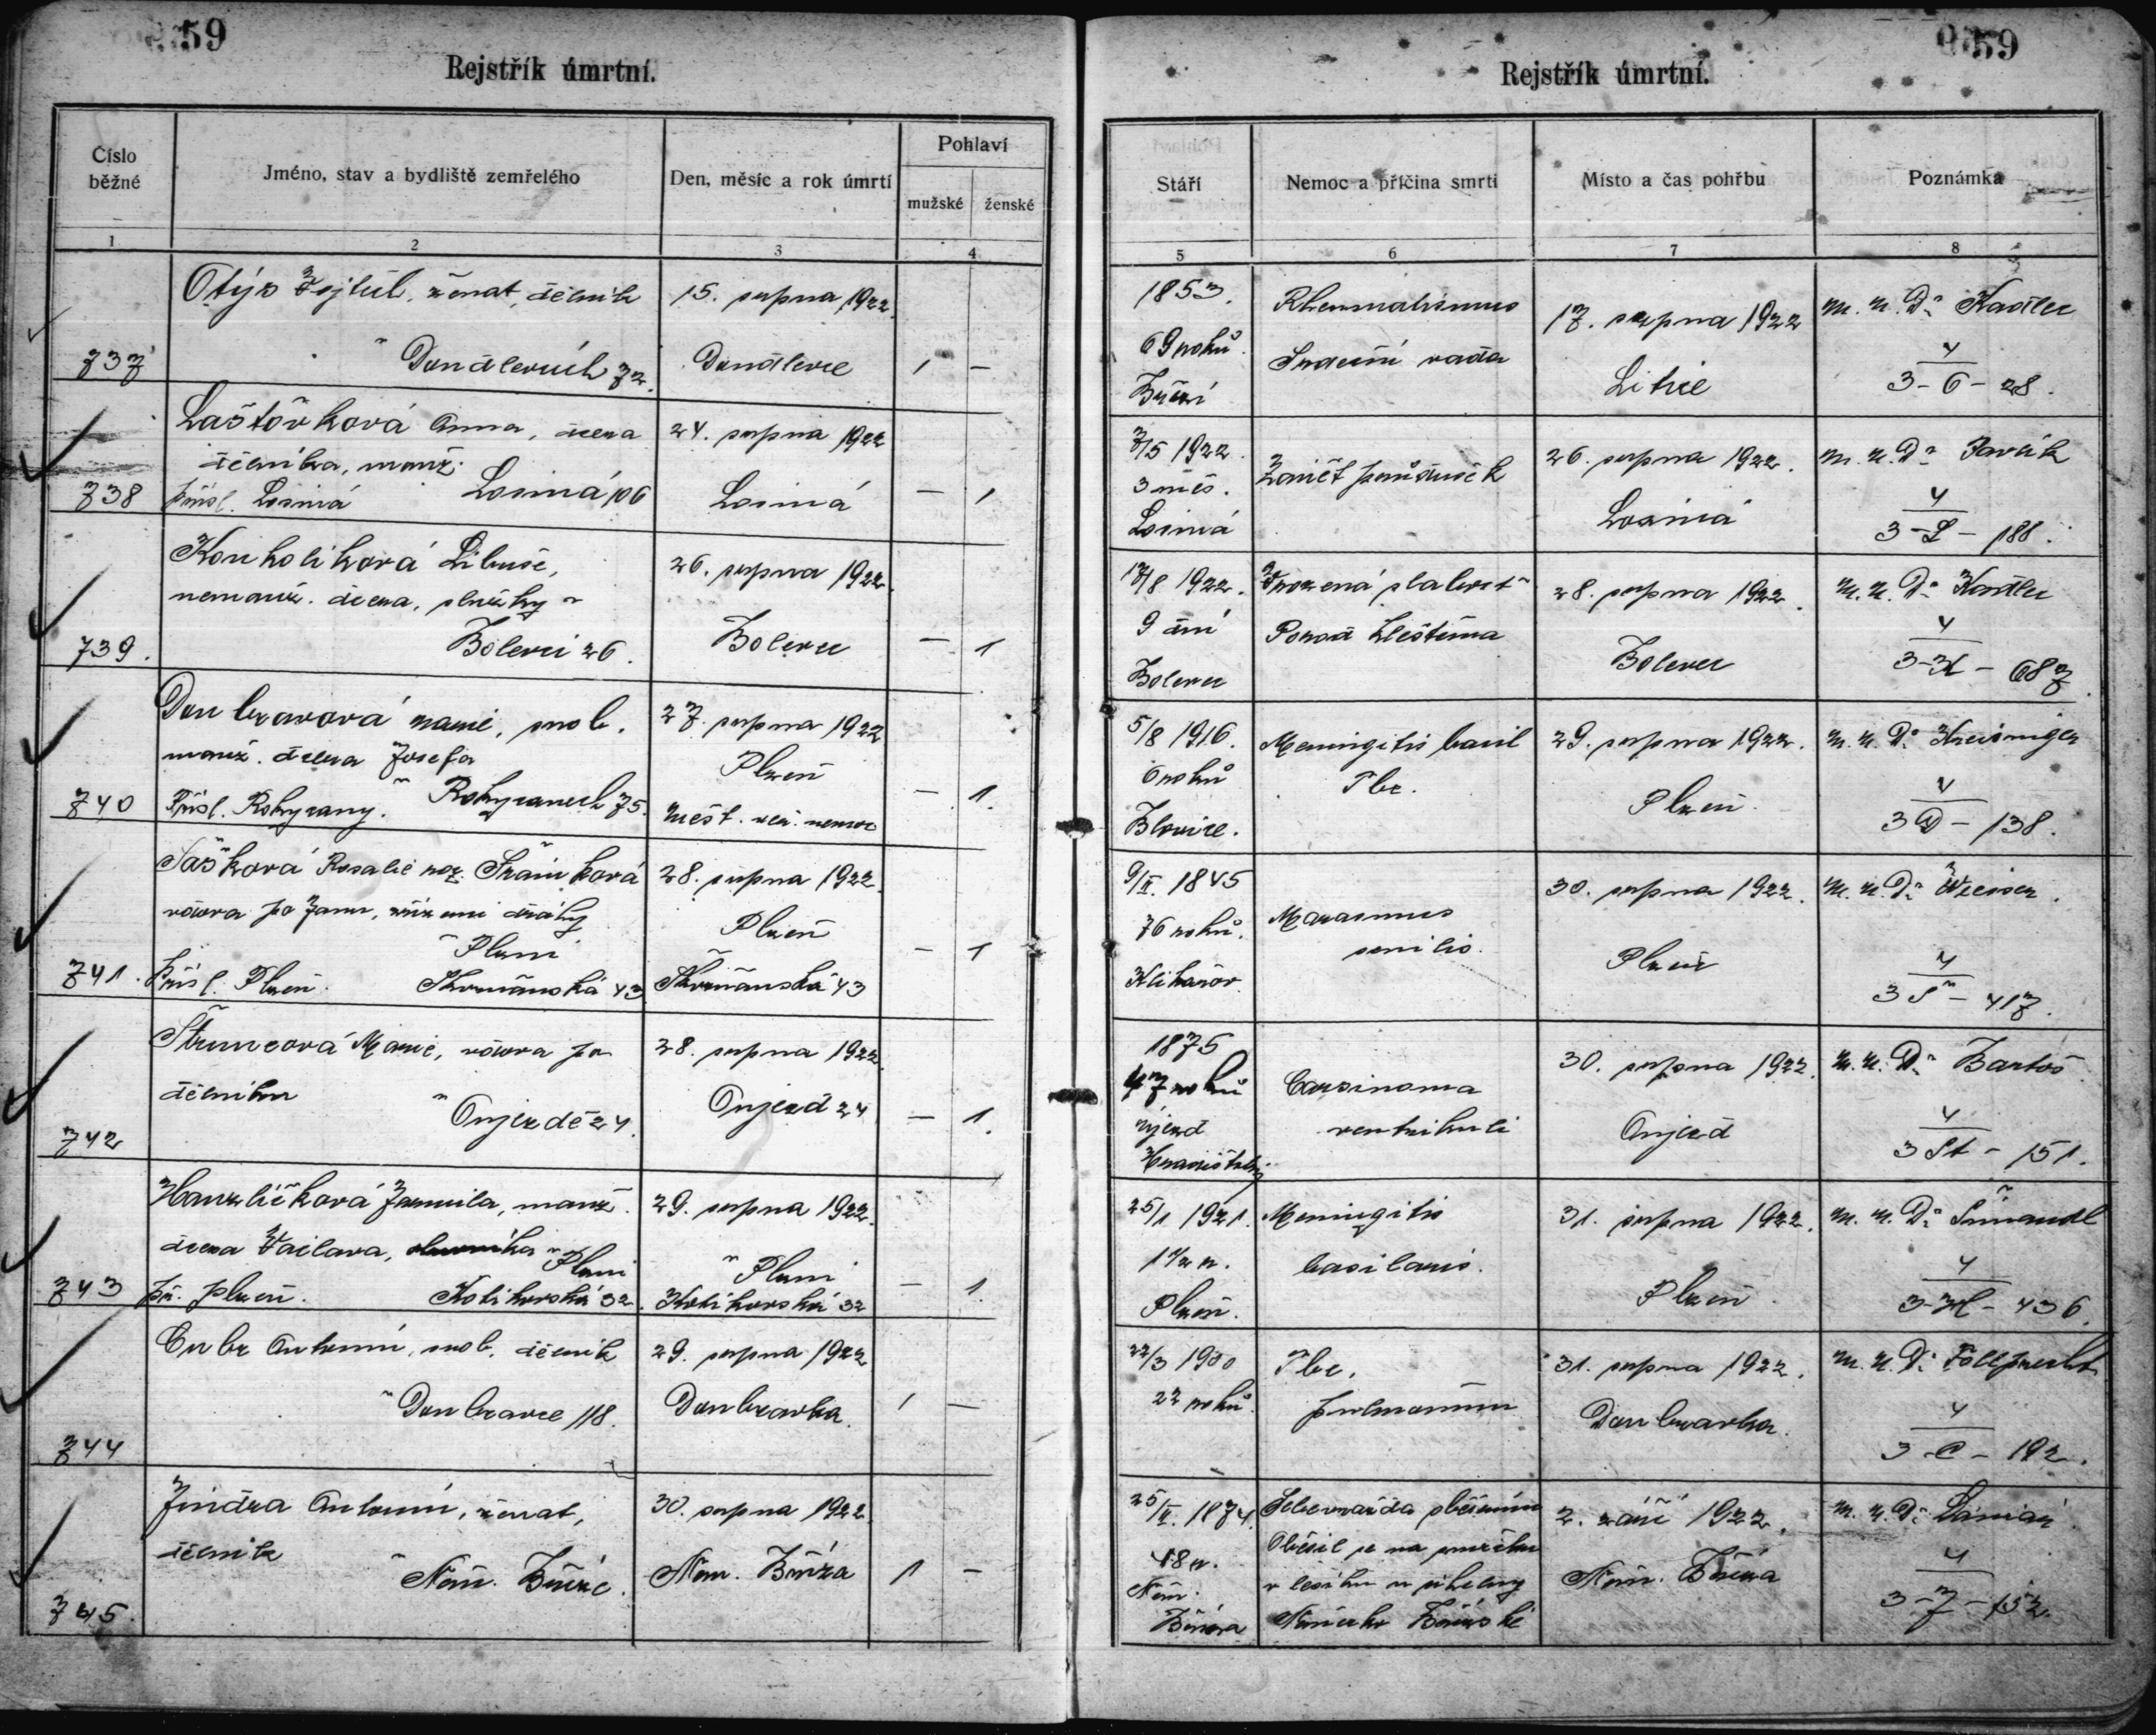 59
Rejstřík úmrtní.
Číslo běžné
Jméno, stav a bydliště zemřelého
Den, měsíc a rok úmrtí
Pohlaví
mužské
ženské
1
2
3
4
737
Otýs Vojtěch, ženat, dělník
v Doudlevcích 72.
15. srpna 1922
Doudlevce
1 –
738
Laštovková Anna, dcera
dělníka, manž.
přísl. Losiná Losiná 106
24. srpna 1922
Losiná
– 1
739.
Konholíková Libuše,
nemanž. dcera, služky v
Bolevci 26.
26. srpna 1922.
Bolevec
– 1
740
Doubravová Marie, svob.
manž. dcera Josefa
Přísl. Rokycany. v Rokycanech 75.
27. srpna 1922
Plzeň
měst. nemoc
– 1.
741.
Šašková Rosalie roz.
vdova po Janu, zříz. dráhy
v Plzni
přísl. Plzeň. Skvrňanská 43
28. srpna 1922.
Plzeň
Skvrňanská 43
– 1
742
Štruncová Marie, vdova po
dělníku
v Oujezdě 24.
28. srpna 1922.
Oujezd 24
– 1.
743
Hanzlíčková Jarmila, manž.
dcera Václava, v Plzni
př. Plzeň. Kotikovská 32.
29. srpna 1922.
v Plzni
Kotikovská 32
– 1.
744
Cubr Antonín, svob. dělník
v Doubravce 118.
29. srpna 1922
Doubravka.
1 –
745.
Jindra Antonín, ženat,
dělník
v Něm. Bříze.
30. srpna 1922.
Něm. Bříza
1 –
59
Rejstřík úmrtní.
Stáří
Nemoc a příčina smrti
Místo a čas pohřbu
Poznámka
5
6
7
8
1853.
69 roků.
Rheumatismus
Srdeční vada
17. srpna 1922
Litice
M. U. Dr. Kadlec
4
3-O-28.
7/5 1922.
3 měs.
Losiná
Zánět průdušek
26. srpna 1922.
Losiná
M. U. Dr. Pavlík
4
3-L-188.
17/8 1922.
9 dní
Bolevec
Vrozená slabost
Porod kleštěma
28. srpna 1922.
Bolevec
M. U. Dr. Kadlec
4
3-K-687.
5/8 1916.
6 roků
Blovice.
Meningitis basil
Tbc.
29. srpna 1922.
Plzeň.
M. U. Dr. Kreisinger
4
3D-138.
9/II. 1845
76 roků.
Marasmus
senilis.
30. srpna 1922.
Plzeň
M. U. Dr.
4
3Š-417.
1875
47 roků
újezd
Carcinoma
ventrikuli
30. srpna 1922.
Oujezd
M. U. Dr. Bartoš
4
3St-151.
25/1 1921.
1 1/2 r.
Plzeň.
Meningitis
basilaris.
31. srpna 1922.
Plzeň.
M. U. Dr. Šimandl
4
3-H-436.
22/3 1900
22 roků.
Tbc.
pulmonum
31. srpna 1922.
Doubravka.
M. U. Dr.
4
3-C-192.
25/II. 1874.
48 r.
Něm.
Bříza
Sebevražda oběšením
Oběsil se na smrčku
v lesíku u cihelny
2. září 1922.
Něm. Bříza
M. U. Dr.
4
3-J-152.